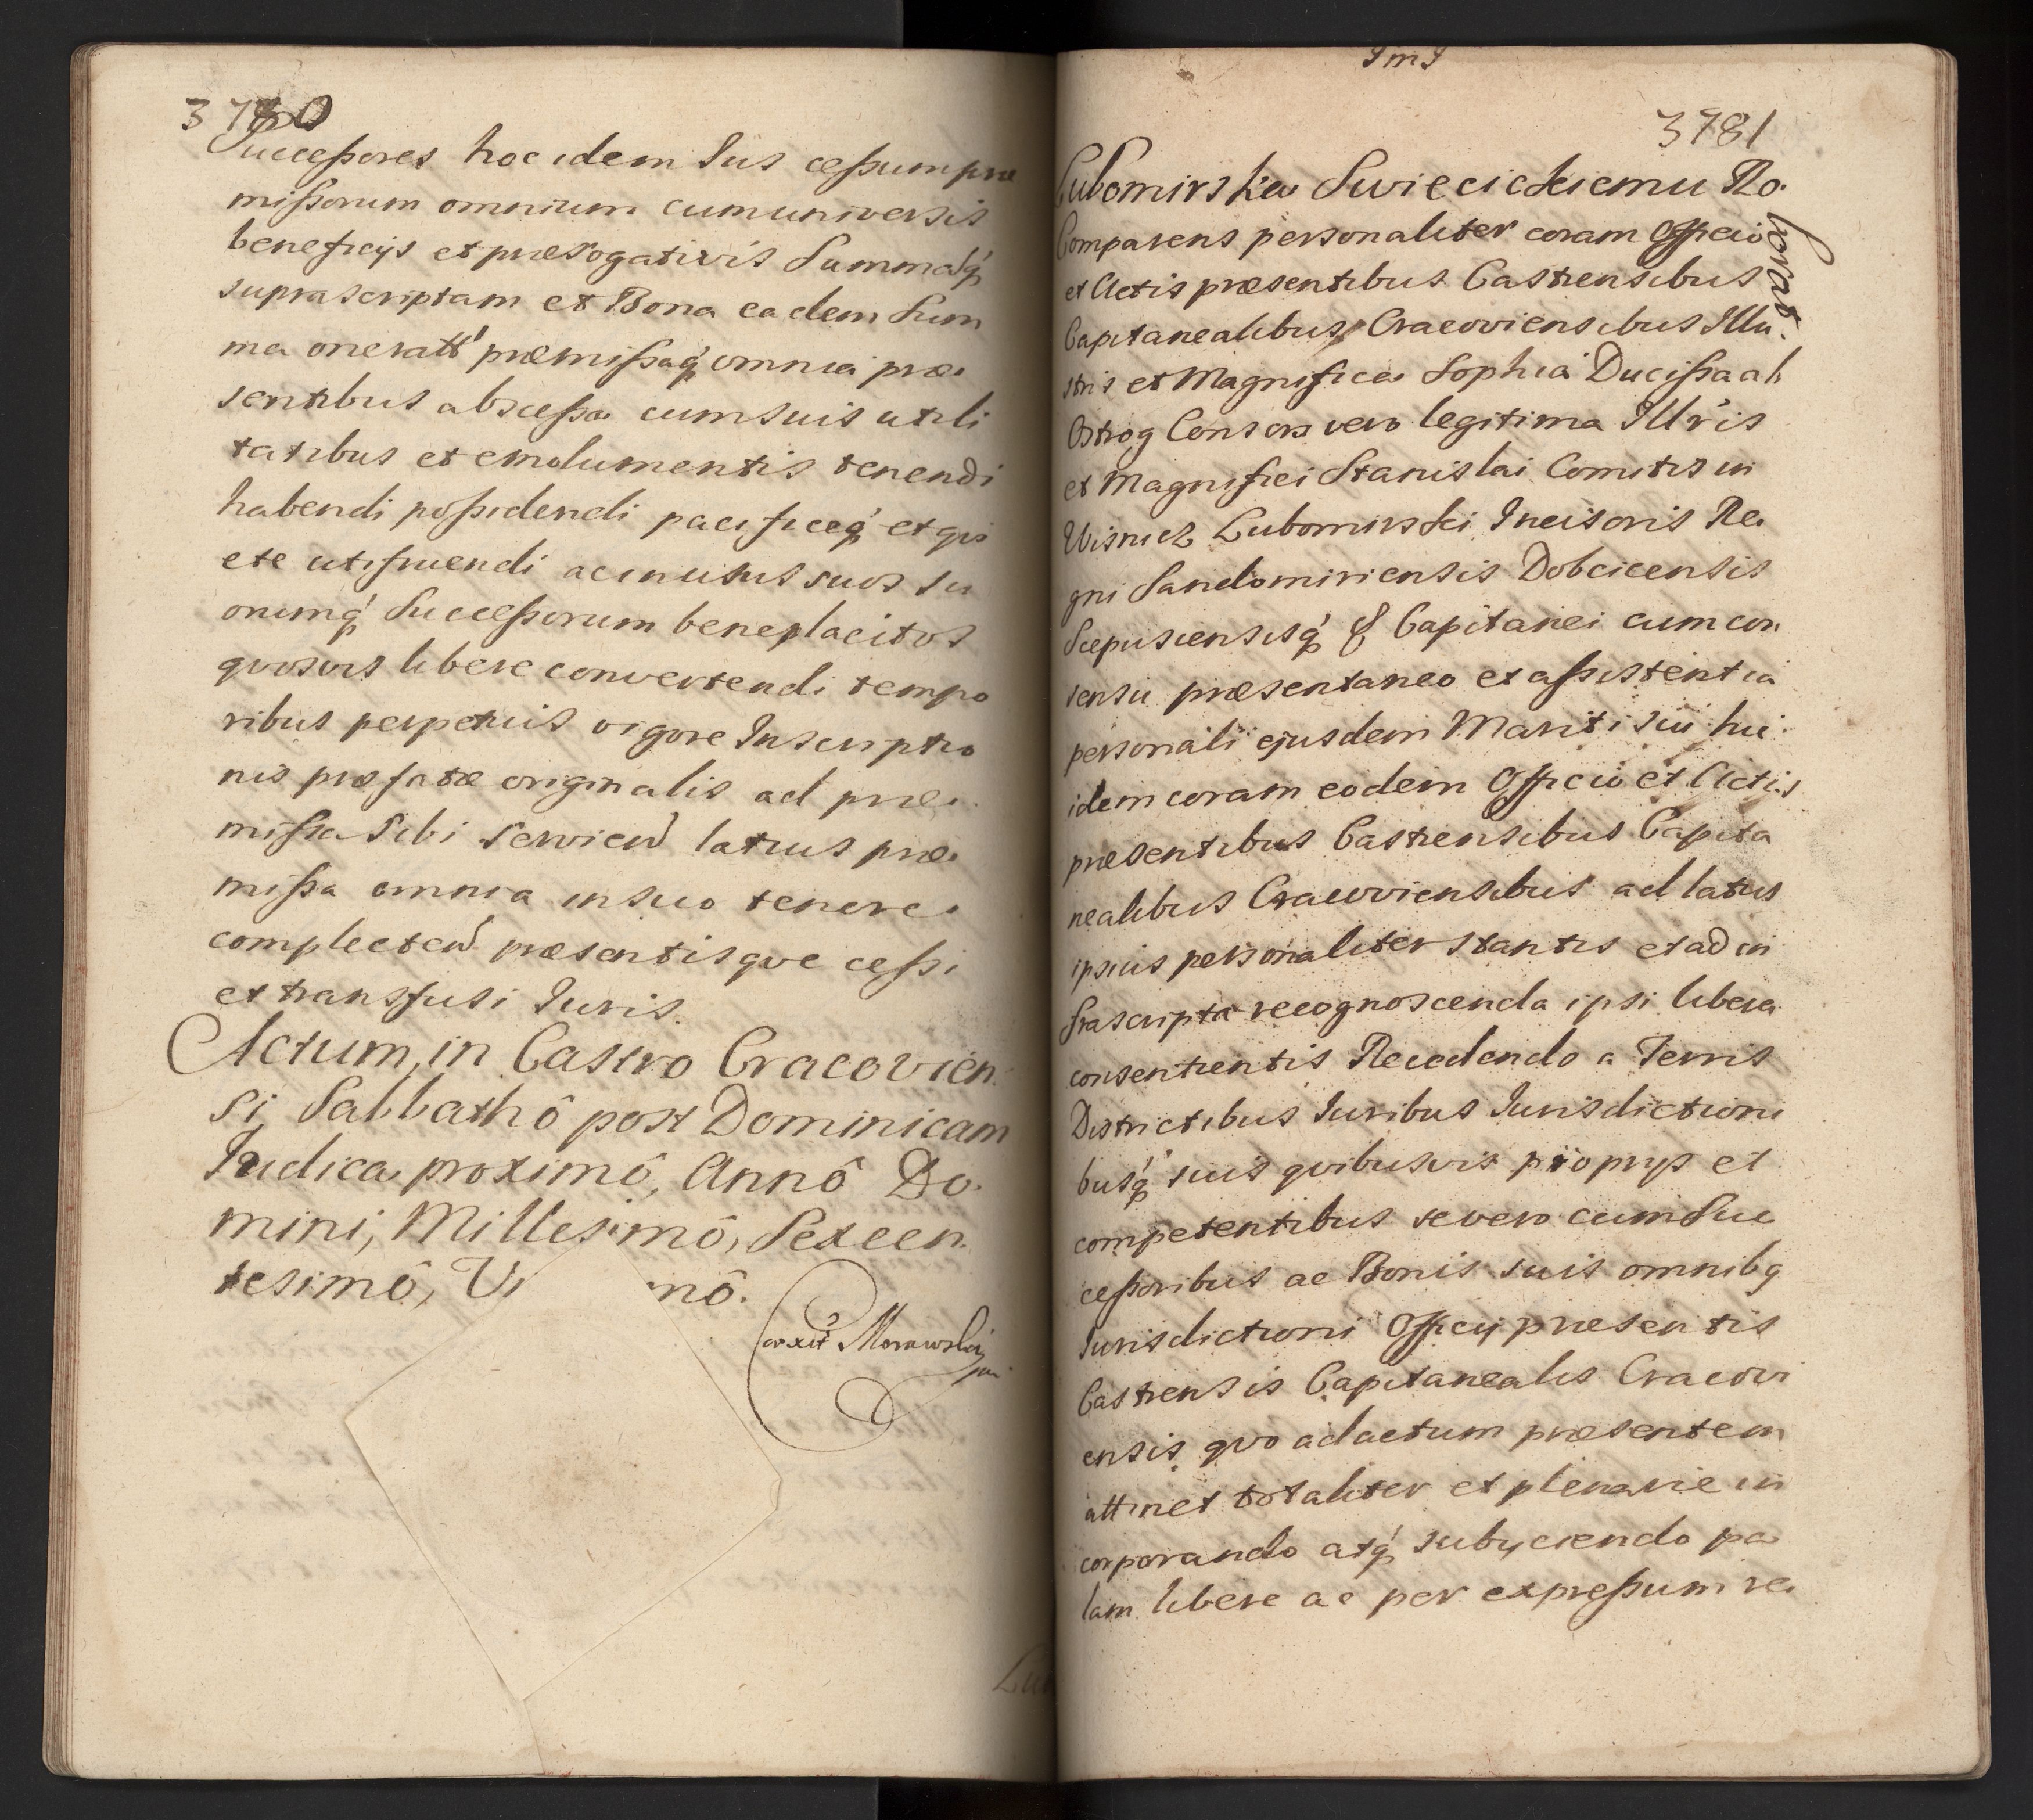 3780
Successores hoc idem Ius cessum præ
missorum omnium cum universis
beneficÿs et prærogativis Summaq́
suprascriptam et Bona eadem Sum
ma oneratt præmissaq́ omnia præ
sentibus abscessa cum suis utili
tatibus et emolumentis tenendi
habendi possidendi pacificeq́ et qvi
ete utifruendi ac in usus suos su
orumq́ Successorum beneplacitos
qvosvis libere convertendi tempo
ribus perpetuis vigore Inscriptio
nis præfatæ originalis ad præ
missa sibi servien latius præ
missa omnia in suo tenere
complecten præsentisqve cessi
et transfusi Iuris.
Actum, in Castro Cracovien
si, Sabbathô post Dominicam
Iudica proximô, Annô Do.
mini, Millesimô, Sexcen.
tesimô, Vi mô.
Correxit Morawski
Lu
ImI
3781
Lubomirska Swięcickiemu Ro.
borat
Comparens personaliter coram Officio
et Actis præsentibus Castrensibus
Capitanealibus Cracoviensibus Illu.
stris et Magnifica Sophia Ducissa ab
Ostrog Consors vero legitima Illris
et Magnifici Stanislai Comitis in
Wisnicz Lubomirski Incisoris Re.
gni Sandomiriensis Dobcicensis
Scepusiensisq́ & Capitanei cum con
sensu præsentaneo et assistentia
personali ejusdem Mariti sui hic
idem coram eodem Officio et Actis
præsentibus Castrensibus Capita
nealibus Cracoviensibus ad latus
ipsius personaliter stantis et ad in
frascripta recognoscenda ipsi libera
consentientis Recedendo a Terris
Districtibus Iuribus Iurisdictioni
busq́ suis qvibusvis proprÿs et
competentibus se vero cum Suc
cessoribus ac Bonis suis omnibq
Iurisdictioni Officÿ præsentis
Castrensis Capitanealis Cracovi
ensis qvo ad actum præsentem
attinet totaliter et plenarie in
corporando atq́ subÿciendo pa
lam libere ac per expressum re.